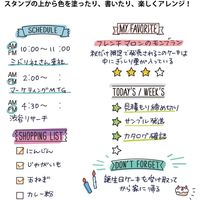 スタンプの上から色を塗ったり、書いたり、楽しくアレンジ！
SCHEDULE
AM
PM
10:00～11:00
ミドリ社さん来社
AM
PM
2:00～
マーケティングMTG
AM
PM
4:30～
渋谷リサーチ
SHOPPING LIST
にんじん
じゃがいも
玉ねぎ
カレー粉
MY FAVORITE
フレンチマロンのモンブラン
秋だけ限定で発売されるこのケーキは
中にぎっしり栗が入っている
TODAY'S / WEEK'S
見積もり締めきり
サンプル発送
カタログ確認
DON'T FORGET
誕生日ケーキを受け取って
から家に帰る